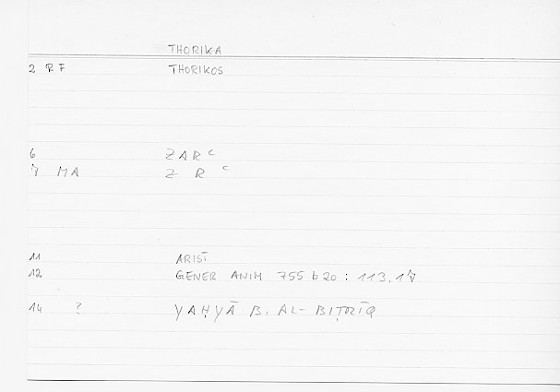 THORIKA
2 RF THORIKOS
6 ZARC
7 MA Z R C
11 ARIST
12 GENER ANIM 755 b 20 : 113.17
14 ? YAḤYĀ B. AL-BIṬRĪQ